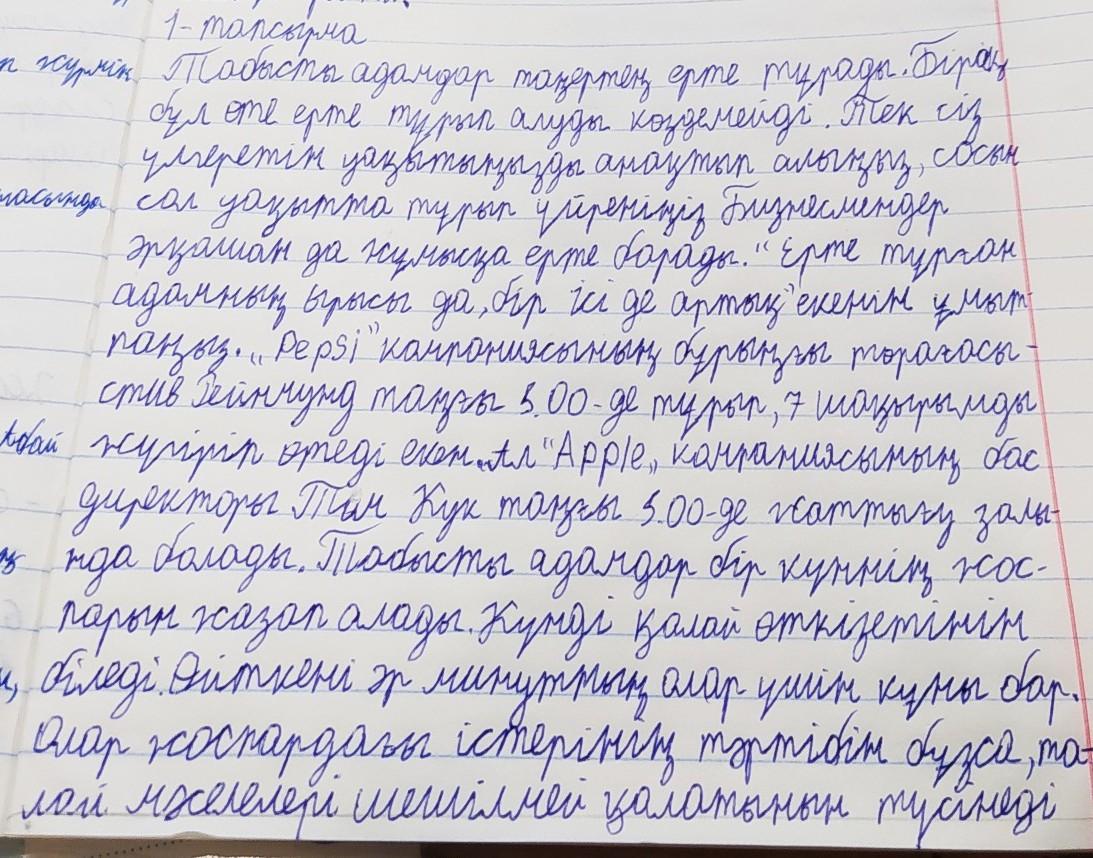 1-тапсырма
п жүрмін Табысты адамдар таңертең ерте тұрады. Бірақ
бұл өте ерте тұрып алуды көздемейді. Тек сіз
үлгеретін уақытыңызды анақтып алыңыз, сосын
ласында сол уақытта тұрып үйреніңіз Бизнесмендер
әрқашан да жұмысқа ерте барады. "Ерте тұрған
адамның ырысы да, бір ісі де артық" екенін ұмыт-
паңыз. „Pepsi" компаниясының бұрыңғы төрағасы-
стив Рейнмунд таңғы 5.00-де тұрып, 7 шақырымды
Абай жүгіріп өтеді екен. Ал "Apple„ компаниясының бас
директоры Тим Кук таңғы 5.00-де жаттығу залы-
нда болады. Табысты адамдар бір күннің жос-
парын жазап алады. Күнді қалай өткізетінін
біледі. Өйткені әр минуттың олар үшін құны бар.
Олар жоспардағы істерінің тәртібін бұзса, та-
лай мәселелері шешілмей қалатынын түсінеді